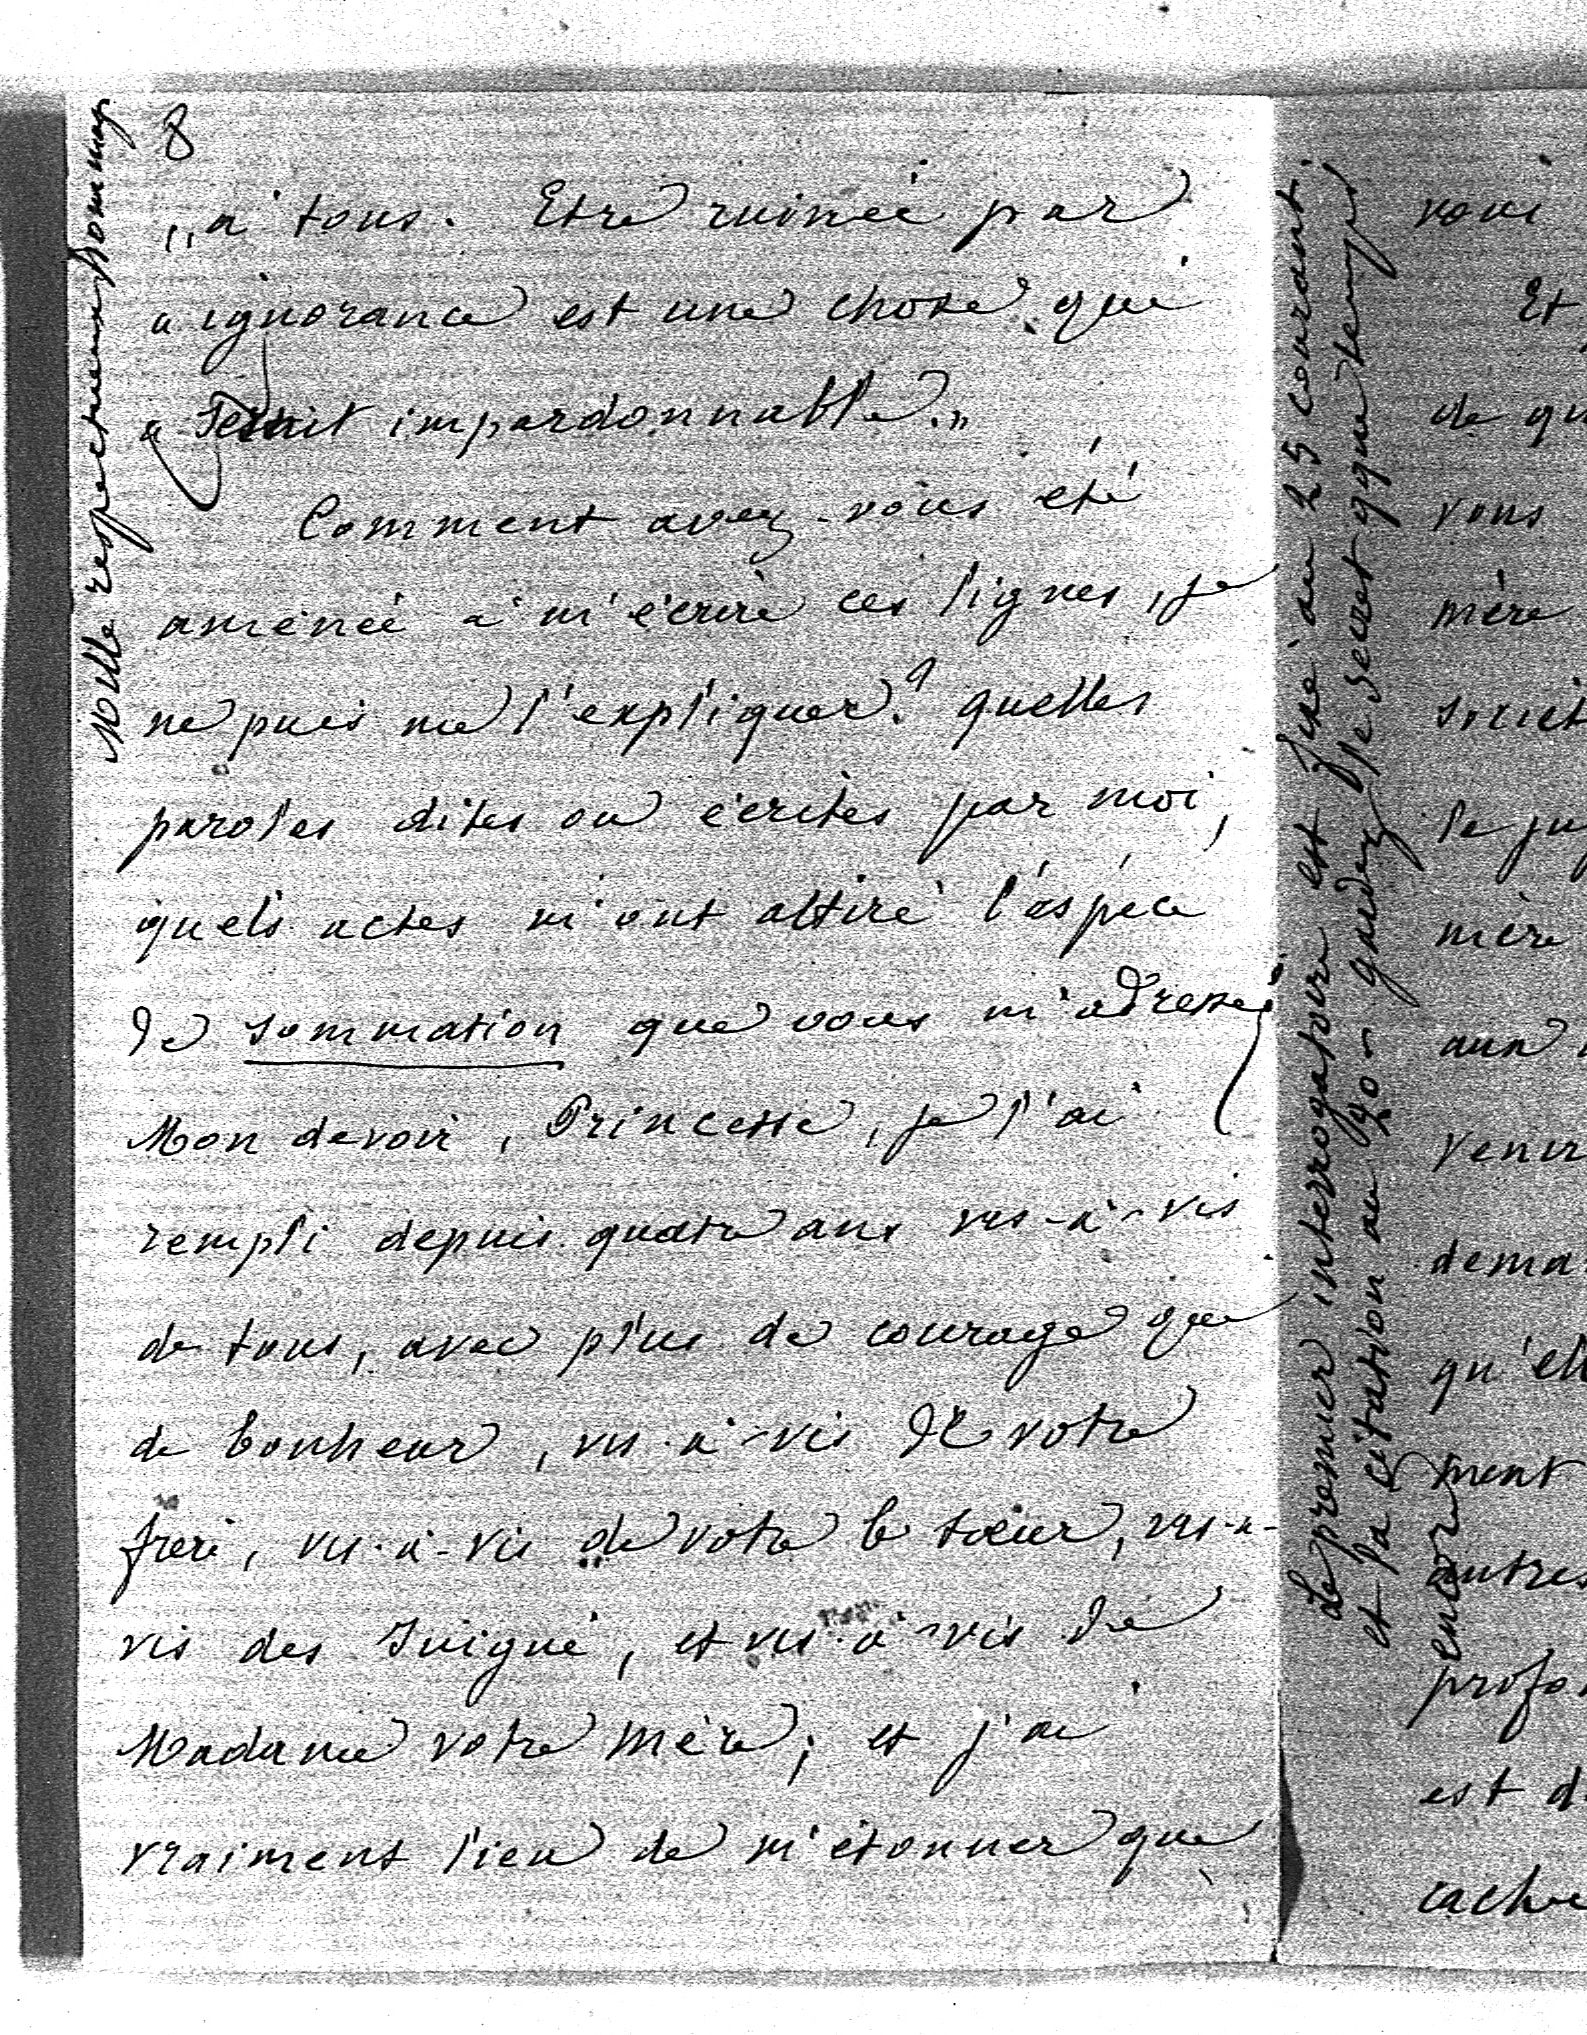 8
„à tous. Etre ruinée par
« ignorance est une chose que
« serait impardonnable.»
Comment avez-vous été
amenée à m'écrire ces lignes, je
ne puis me l'expliquer? quelles
paroles dites ou écrites par moi,
quels actes m'ont attiré l'espèce
de sommation que vous m'adressez
Mon devoir, Princesse, je l'ai
rempli depuis quatre ans vis-à-vis
de tous, avec plus de courage que
de bonheur, vis-à-vis de votre
frère, vis-à-vis de votre b sœur, vis-à-
vis des , et vis-à-vis de
Madame votre mère; et j'ai
vraiment lieu de m'étonner que
Mille respectueux hommag
Le premier interrogatoire est fixé au 25 courant
et la citation au 20 - gardez le secret qque temps
encore
Et
de qu
vous
mère
sociét
le ju
mère
aux
venir
dema
qu'ell
ment
autres
profo
est d
cache